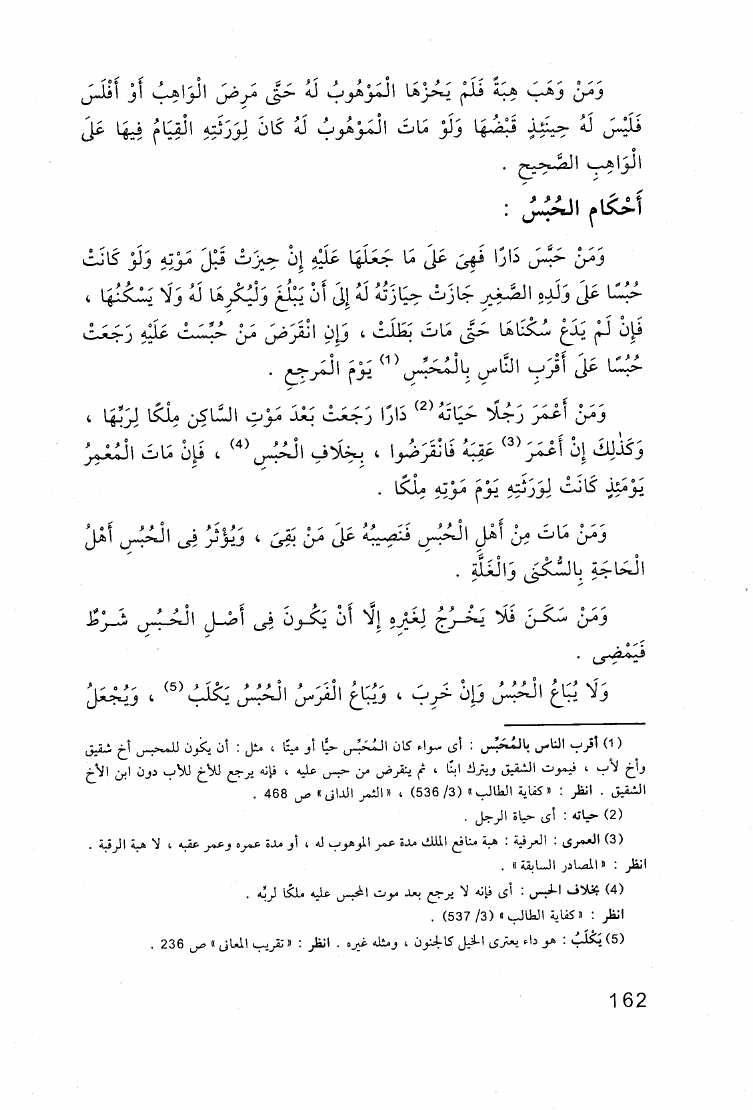 وَمَنْ وَهَبَ هِبَةً فَلَمْ يَحُزْهَا الْمَوْهُوبُ لَهُ حَتَّى مَرِضَ الْوَاهِبُ أَوْ أَفْلَسَ
فَلَيْسَ لَهُ حِينَئِذٍ قَبْضُهَا وَلَوْ مَاتَ الْمَوْهُوبُ لَهُ كَانَ لِوَرَثَتِهِ الْقِيَامُ فِيهَا عَلَى
الْوَاهِبِ الصَّحِيحِ .
أَحْكَام الحُبُسُ :
وَمَنْ حَبَّسَ دَارًا فَهِىَ عَلَى مَا جَعَلَهَا عَلَيْهِ إِنْ حِيزَتْ قَبْلَ مَوْتِهِ وَلَوْ كَانَتْ
حُبُسًا عَلَى وَلَدِهِ الصَّغِيرِ جَازَتْ حِيَازَتُهُ لَهُ إِلَى أَنْ يَبْلُغَ وَلْيُكْرِهَا لَهُ وَلَا يَسْكُنُهَا ،
فَإِنْ لَمْ يَدَعْ سُكْنَاهَا حَتَّى مَاتَ بَطَلَتْ ، وَإِنِ انْقَرَضَ مَنْ حُبِّسَتْ عَلَيْهِ رَجَعَتْ
حُبُسًا عَلَى أَقْرَبِ النَّاسِ بِالْمُحَبِّسِ (1) يَوْمَ الْمَرجِعِ .
وَمَنْ أَعْمَرَ رَجُلًا حَيَاتَهُ (2) دَارًا رَجَعَتْ بَعْدَ مَوْتِ السَّاكِنِ مِلْكًا لِرَبِّهَا ،
وَكَذٰلِكَ إِنْ أَعْمَرَ (3) عَقِبَهُ فَانْقَرَضُوا ، بِخِلَافِ الْحُبُسِ (4) ، فَإِنْ مَاتَ الْمُعْمِرُ
يَوْمَئِذٍ كَانَتْ لِوَرَثَتِهِ يَوْمَ مَوْتِهِ مِلْكًا .
وَمَنْ مَاتَ مِنْ أَهْلِ الْحُبُسِ فَنَصِيبُهُ عَلَى مَنْ بَقِىَ ، وَيُؤْثَرُ فِى الْحُبُسِ أَهْلُ
الْحَاجَةِ بِالسُّكْنَى وَالْغَلَّةِ .
وَمَنْ سَكَنَ فَلَا يَخْرُجُ لِغَيْرِهِ إِلَّا أَنْ يَكُونَ فِى أَصْلِ الْحُبُسِ شَرْطٌ
فَيَمْضِى .
وَلَا يُبَاعُ الْحُبُسُ وَإِنْ خَرِبَ ، وَيُبَاعُ الْفَرَسُ الْحُبُسُ يَكْلَبُ (5) ، وَيُجْعَلُ
(1) أقرب الناس بالْمُحَبِّس : أى سواء كان المُحَبِّس حيًّا أو ميتًا ، مثل : أن يكون للمحبس أخ شقيق
وأخ لأب ، فيموت الشقيق ويترك ابنًا ، ثم ينقرض من حبس عليه ، فإنه يرجع للأخ للأب دون ابن الأخ
الشقيق . انظر : « كفاية الطالب » (3/ 536) ، « الثمر الدانى » ص 468 .
(2) حياته : أى حياة الرجل .
(3) العمرى : العرفية : هبة منافع الملك مدة عمر الموهوب له ، أو مدة عمره وعمر عقبه ، لا هبة الرقبة .
انظر : « المصادر السابقة » .
(4) بخلاف الحبس : أى فإنه لا يرجع بعد موت المحبس عليه ملكًا لربِّه .
انظر : « كفاية الطالب » (3/ 537) .
(5) يَكْلَبُ : هو داء يعترى الخيل كالجنون ، ومثله غيره . انظر : « تقريب المعانى » ص 236 .
162